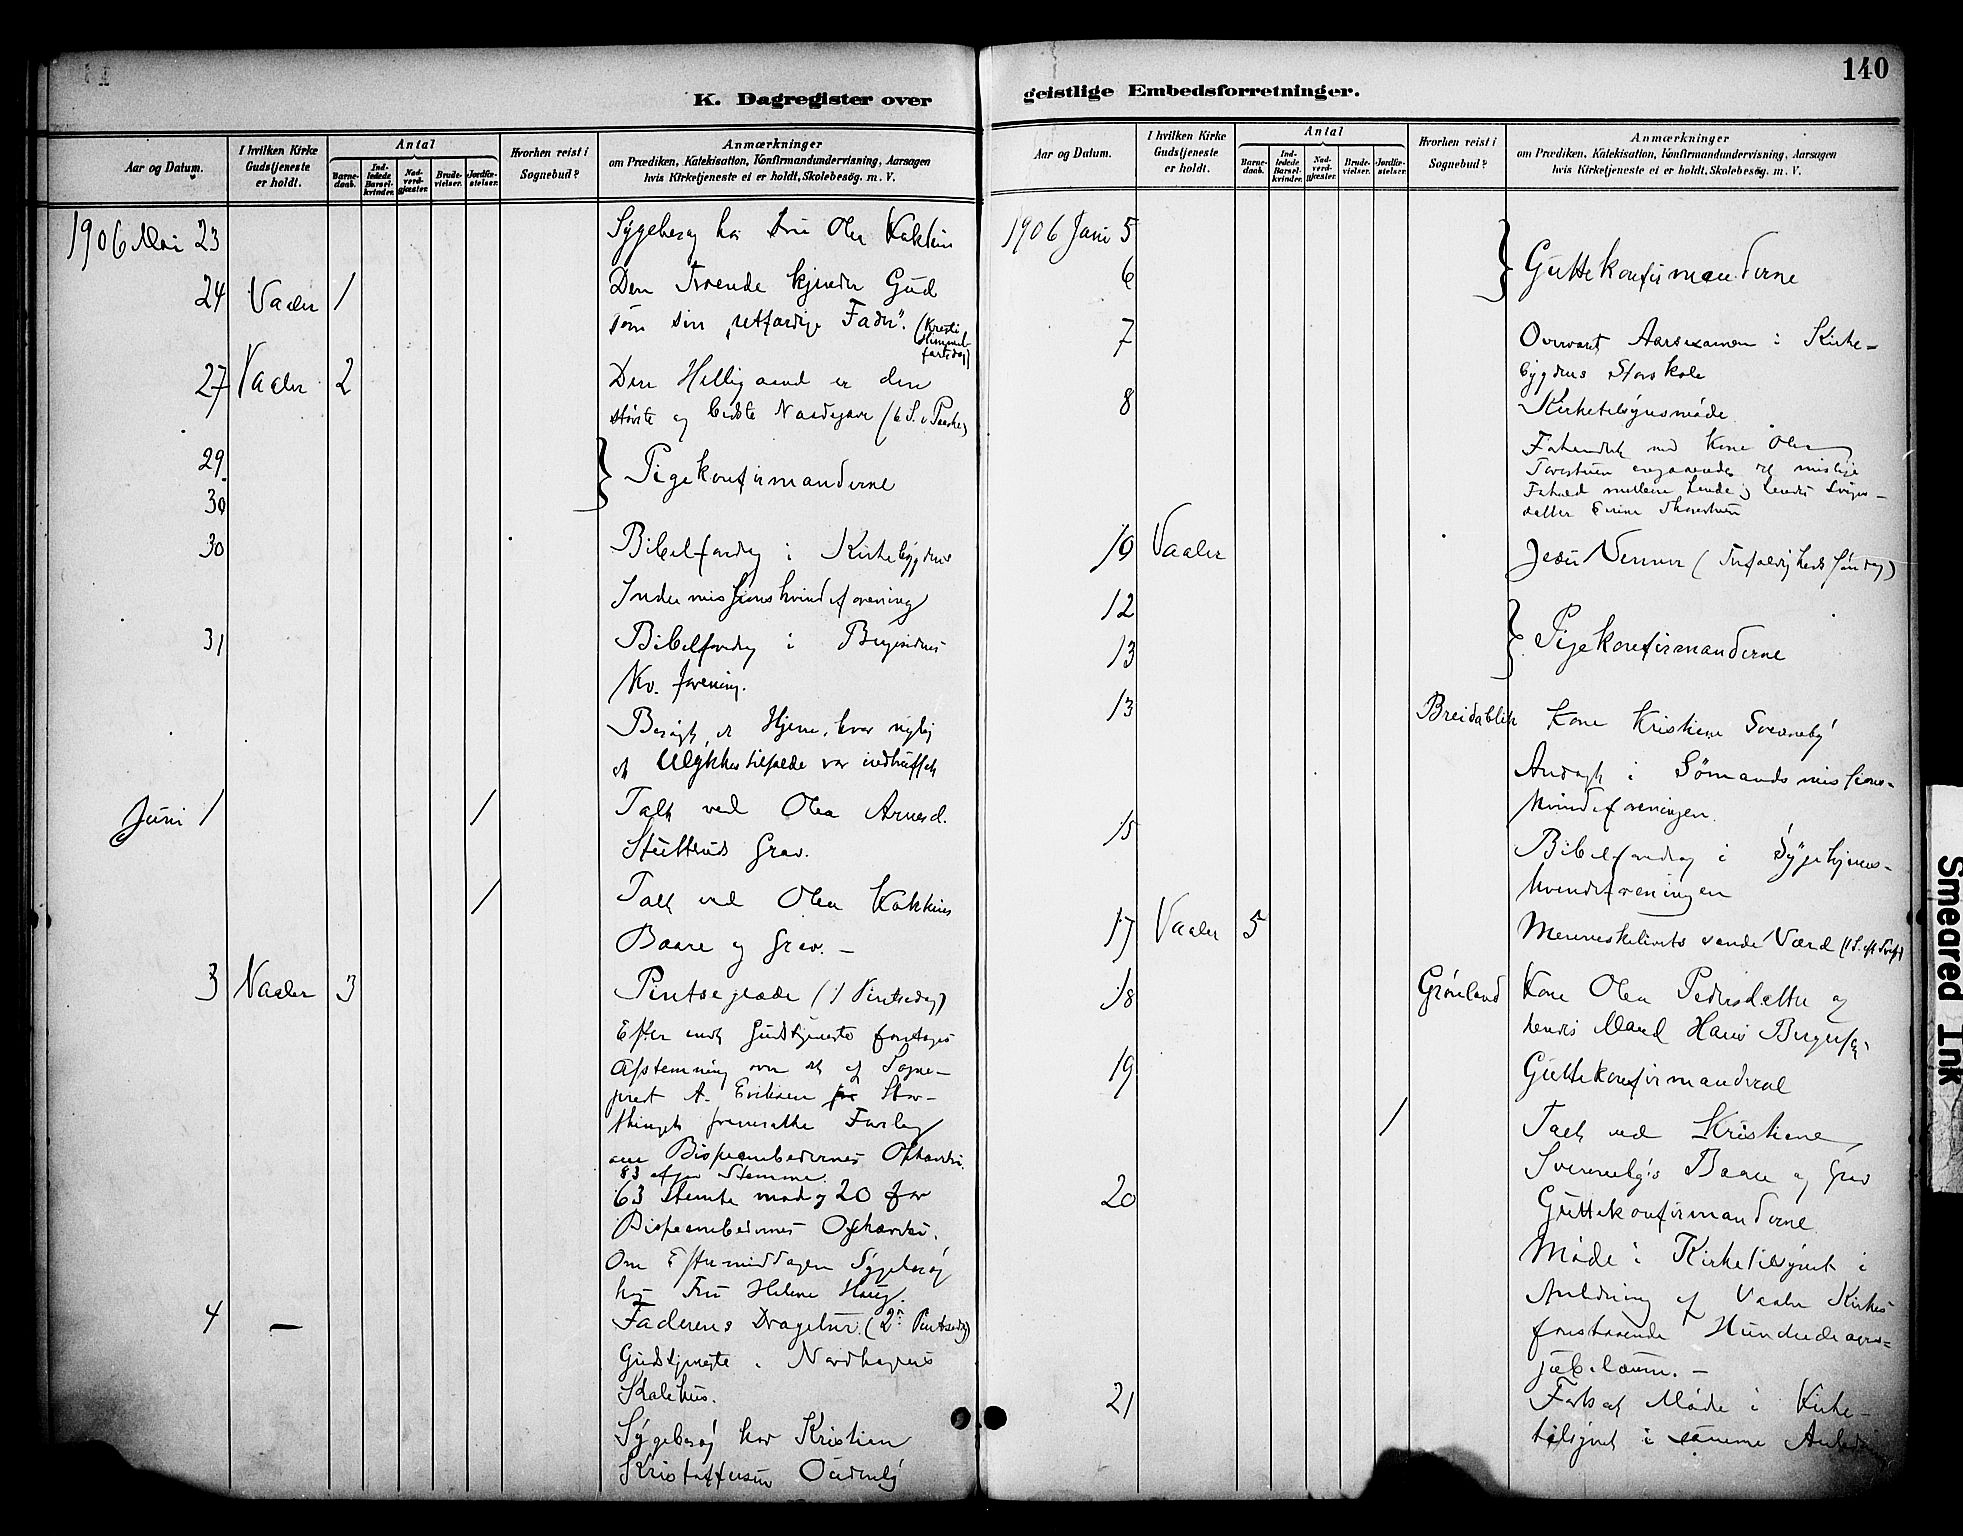 K. Dagregister over
Aar og Datum.
I hvilken Kirke Gudstjeneste er holdt.
Antal
Barne-daab.
Ind-ledede Barsel-kvinder.
Nad-verd-gjæster.
Brude-vielser.
Jordfæ-stelser.
Hvorhen reist i Sognebud?
Anmærkninger
om Prædiken, Katekisation, Konfirmandundervisning, Aarsagen
hvis Kirketjeneste ei er holdt, Skolebesøg. m. V.
1906 Mai 23 Sygebesøg hos Fru Olea
24 Vaaler 1 Den Troende kjender Gud
som sin retfærdige Fader". (Kristi
Himmel-
fartsdag)
27 Vaaler 2 Den Hellig aand er den
største og bedste Naadegave (6 S. e Paaske)
29
30 Pigekonfirmanderne
30 Bibelforedrag i Kirkebygdens
Indremissionskvindeforening
31 Bibelforedrag i
Kv. forening.
Besøgt et Hjem, hvor nylig
et Ulykkestilfælde var indtruffet
Juni 1 1 Talt ved Olea Arnesd.
Grav.
1 Talt ved Olea
Baare og Grav. —
3 Vaaler 3 Pintseglæde (1 Pintsedag)
Efter endt Gudstjeneste foretoges
Afstemning over det af Sogne-
prest A. Eriksen for Stor-
thinget fremsatte Forslag
om Bispeembedernes Ophævelse.
83 afgav Stemme.
63 stemte mod og 20 for
Bispeembedernes Ophævelse.
Om Eftermiddagen Sygebesøg
hos Fru Helene Haug.
4 — Faderens Dragelse (2den Pintsedag)
Gudstjeneste i Nordhagens
Skolehus.
Sygebesøg hos Kristian
Kristoffersen Oudenby
geistlige Embedsforretninger.
140
Aar og Datum.
I hvilken Kirke Gudstjeneste er holdt.
Antal
Barne-daab.
Ind-ledede Barsel-kvinder.
Nad-verd-gjæster.
Brude-vielser.
Jordfæ-stelser.
Hvorhen reist i Sognebud?
Anmærkninger
om Prædiken, Katekisation, Konfirmandundervisning, Aarsagen
hvis Kirketjeneste ei er holdt, Skolebesøg. m. V.
1906 Juni 5
6 Guttekonfirmanderne
7 Overvaret Aarsexamen i Kirke-
bygdens Storskole
8 Kirketilsynsmøde
Forhandlet med Kone Olea
angaaende et misligt
Forhold mellem hende og hendes Sviger-
datter
10 Vaaler Jesu Venner (Trefoldigheds Søndag)
12
13 Pigekonfirmanderne
13 Breidablik Kone Kristiene Svenneby
Andagt i Sømandsmissions-
kvindeforeningen.
15 Bibelforedrag i Sygehjems-
kvindeforeningen
17 Vaaler 5 Menneskelivets sande Værd (1 S. eft Trefol)
18 Grønland Kone Olea Pedersdatter og
hendes Mand Hans Bergersen
19 Guttekonfirmanderne
1 Talt ved Kristiene
Svenneby's Baare og Grav
20 Guttekonfirmanderne
Møde i Kirketilsynet i
Anledning af Vaaler Kirkes
forestaaende Hundredeaars-
jubilæum. —
21 Fortsat Møde i Kirke-
tilsynet i samme Anledning
Smeared Ink